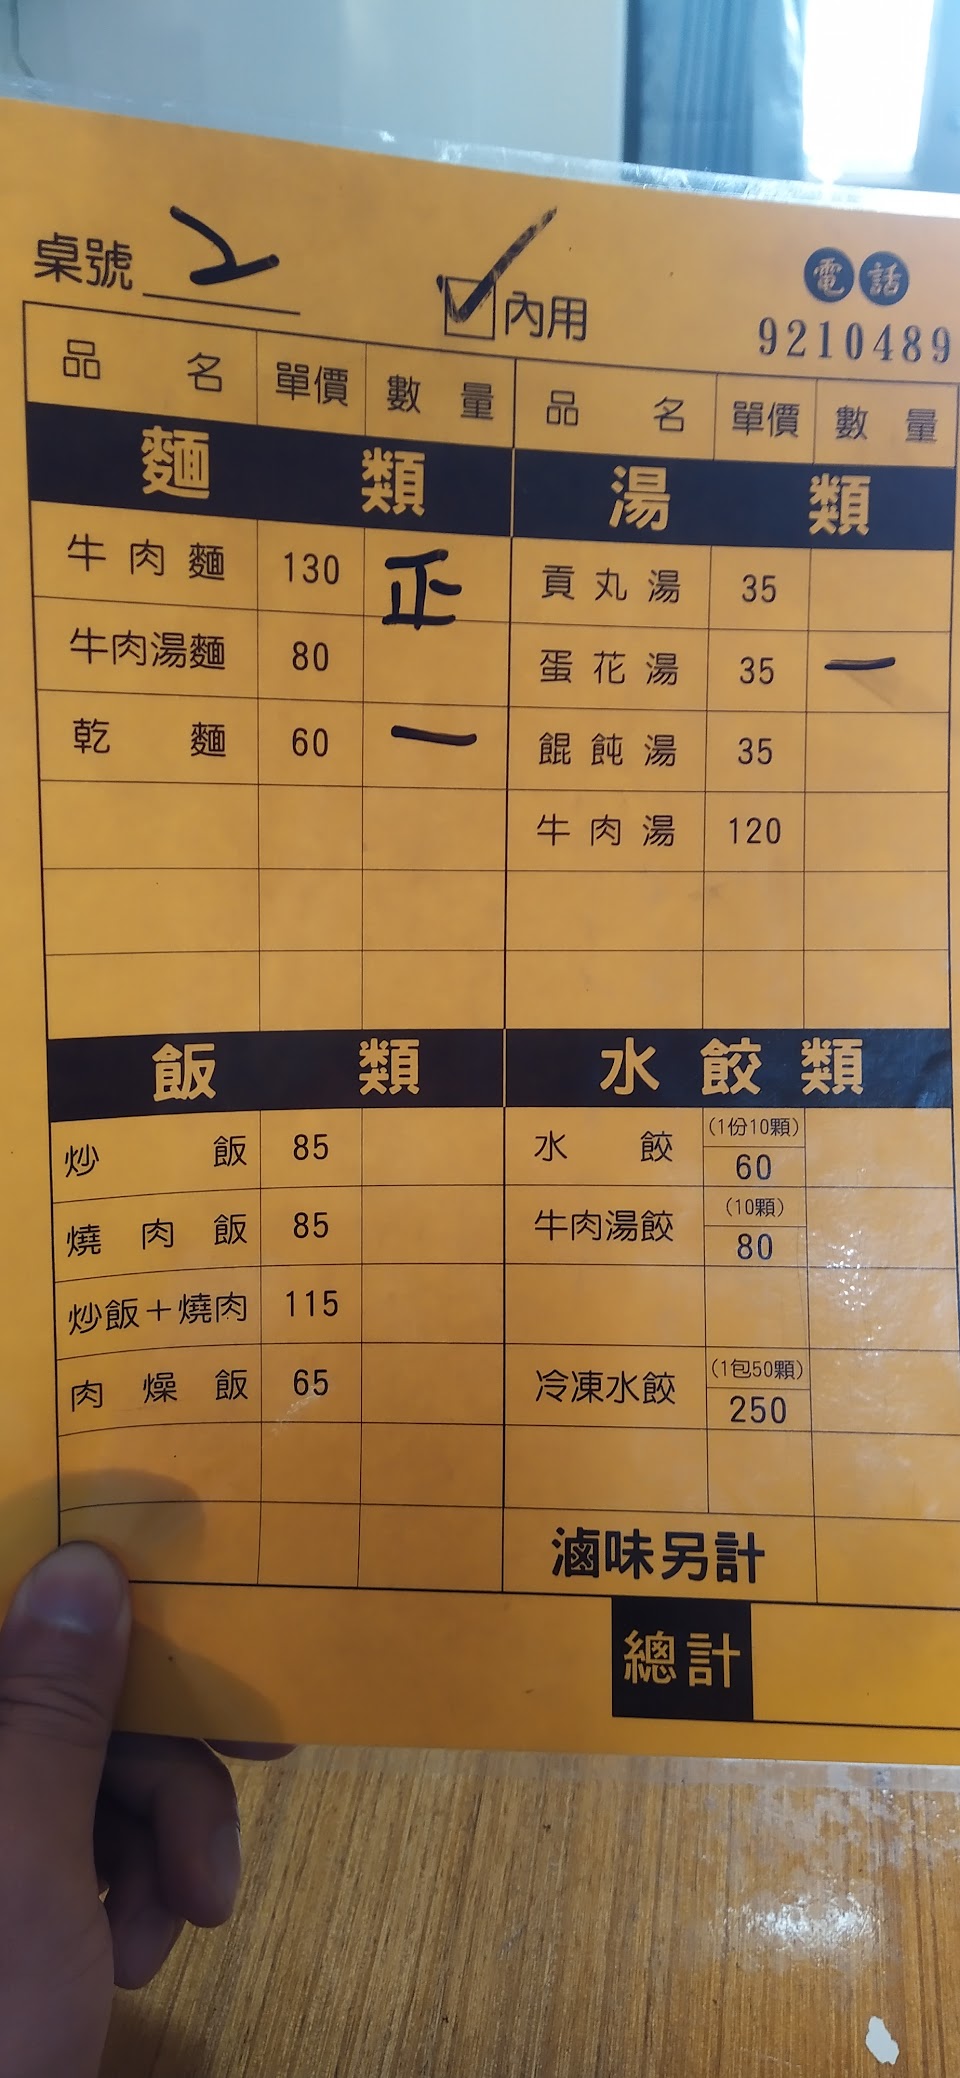 桌號 2 ✓ 內用 電話
9210489
品名 單價 數量 品名 單價 數量
麵類 湯類
牛肉麵 130 正 貢丸湯 35
牛肉湯麵 80 蛋花湯 35 一
乾麵 60 一 餛飩湯 35
牛肉湯 120
飯類 水餃類
炒飯 85 水餃 (1份10顆) 60
燒肉飯 85 牛肉湯餃 (10顆) 80
炒飯+燒肉 115
肉燥飯 65 冷凍水餃 (1包50顆) 250
滷味另計
總計